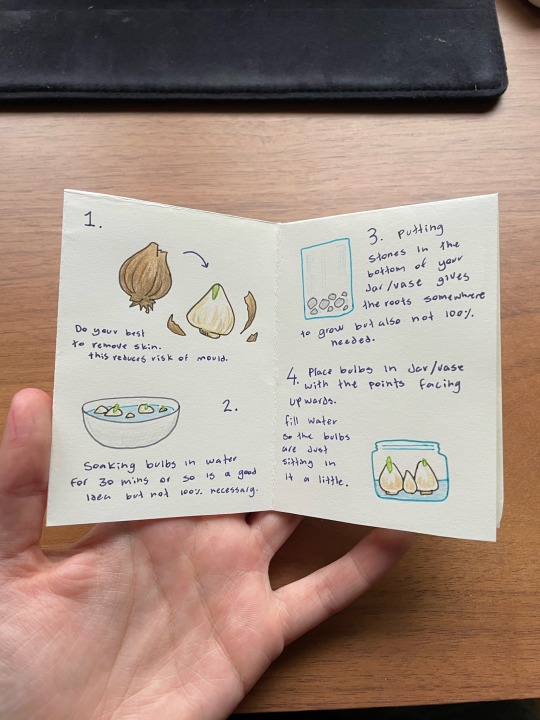 1.
Do your best
to remove skin.
this reduces risk of mould.
2.
Soaking bulbs in water
for 30 mins or so is a good
idea but not 100% necessary.
3. Putting
stones in the
bottom of your
Jar/vase gives
the roots somewhere
to grow but also not 100%
needed.
4. Place bulbs in Jar/vase
with the points facing
upwards.
fill water
so the bulbs
are just
sitting in
it a little.